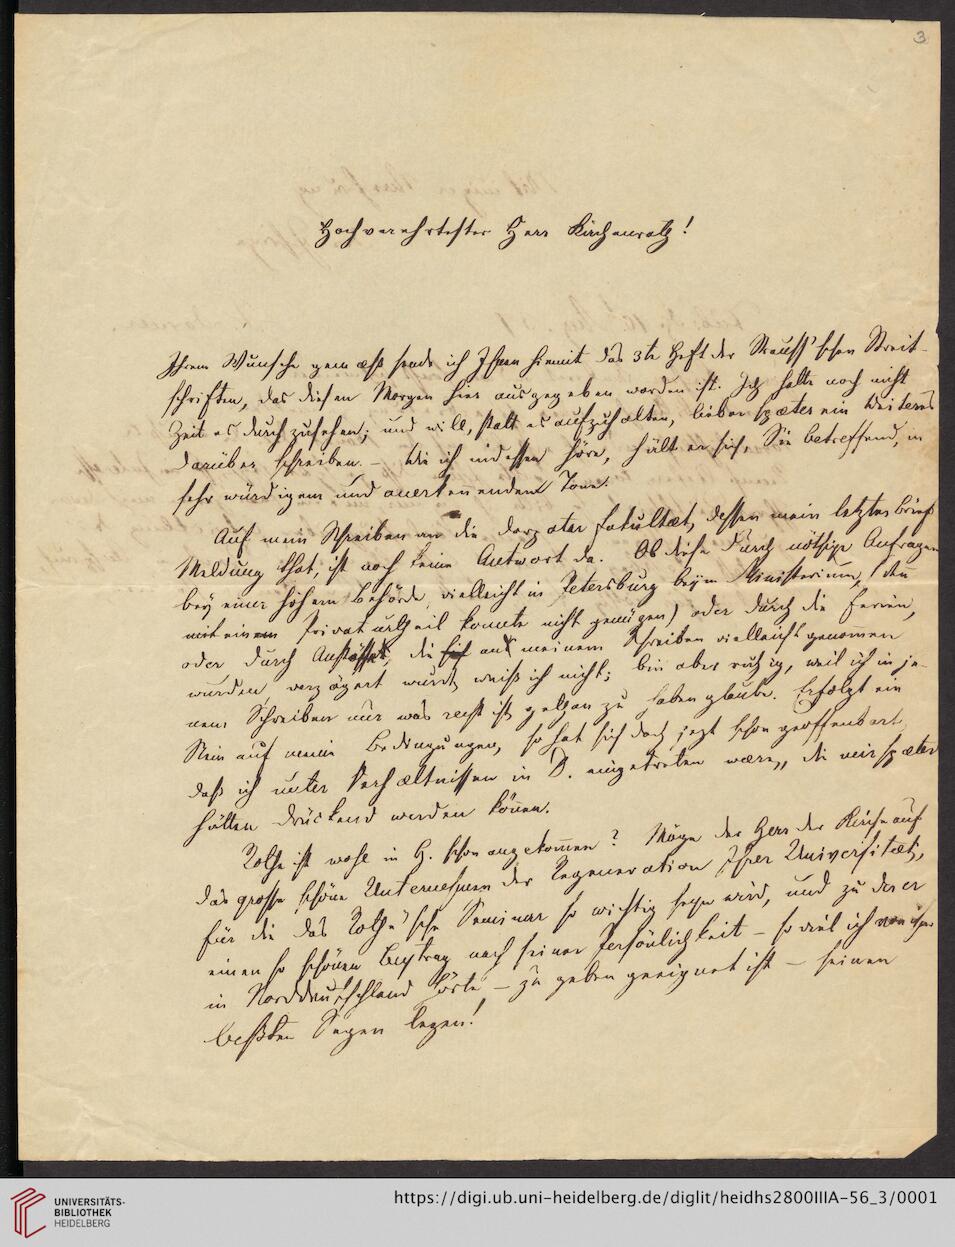 3
Hochverehrtester Herr Kirchenrath!
Ihrem Wunsche gemæß sende ich Ihnen hiemit das 3te Heft der Strauß'schen Streit-
schriften, das diesen Morgen hier ausgegeben worden ist. Ich hatte noch nicht
Zeit es durchzusehen; und will, statt es aufzuhalten, lieber spæter ein Weiteres
darüber schreiben. – Wie ich indessen höre, hält er sich, Sie betreffend, in
sehr würdigem und anerkennendem Tone.
Auf mein Schreiben an die dorpater Fakultæt, dessen mein letzter Brief
Meldung that, ist noch keine Antwort da. Ob diese durch nöthige Anfragen
bey einer höhern Behörde, vielleicht in Petersburg beym Ministerium, (denn
mit einem Privaturtheil konnte nicht genügen) oder durch die Ferien,
oder durch Anstöße, die an meinem Schreiben vielleicht genommen
wurden, verzögert wurde, weiß ich nicht; bin aber ruhig, weil ich in je-
nem Schreiben nur was recht ist gethan zu haben glaube. Erfolgt ein
Nein auf meine Bedingungen, so hat sich doch jezt schon geoffenbart,
daß ich unter Verhæltnissen in D. eingetreten wære, die mir spæter
hätten drückend werden können.
Rothe ist wohl in H. schon angekommen? Möge der Herr der Kirche auf
das große schöne Unternehmen der Regeneration Ihrer Universitæt,
für die das Rothe'sche Seminar so wichtig seyn wird, und zu der er
einen so schönen Beytrag nach seiner Persönlichkeit – so viel ich von ihm
in Norddeutschland hörte – zu geben geeignet ist – seinen
beßten Segen legen!
UNIVERSITÄTS-
BIBLIOTHEK
HEIDELBERG
https://digi.ub.uni-heidelberg.de/diglit/heidhs2800IIIA-56_3/0001